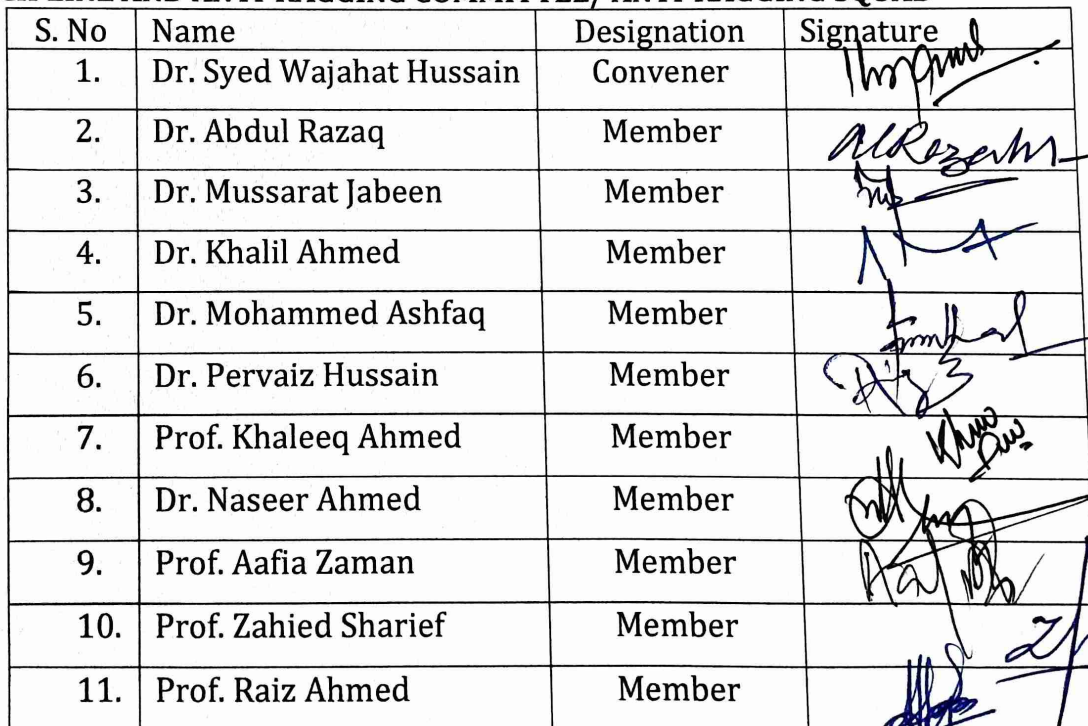 S. No Name Designation Signature
1. Dr. Syed Wajahat Hussain Convener
2. Dr. Abdul Razaq Member
3. Dr. Mussarat Jabeen Member
4. Dr. Khalil Ahmed Member
5. Dr. Mohammed Ashfaq Member
6. Dr. Pervaiz Hussain Member
7. Prof. Khaleeq Ahmed Member
8. Dr. Naseer Ahmed Member
9. Prof. Aafia Zaman Member
10. Prof. Zahied Sharief Member
11. Prof. Raiz Ahmed Member